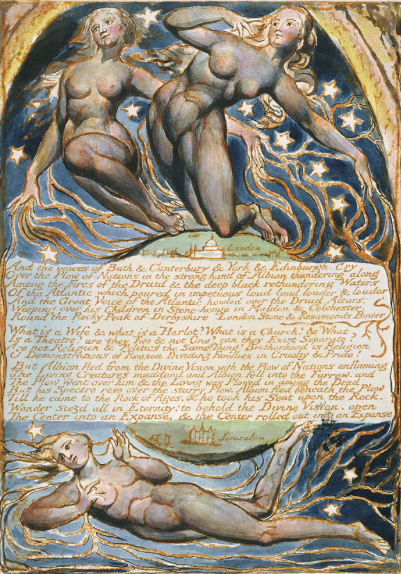 York London
And the voices of Bath & Canterbury & York & Edinburgh. Cry
Over the Plow of Nations in the strong hand of Albion thundering along
Among the Fires of the Druid & the deep black rethundering Waters
Of the Atlantic which poured in impetuous loud loud. louder & louder.
And the Great Voice of the Atlantic howled over the Druid Altars:
Weeping over his Children in Stone-henge in Malden & Colchester.
Round the Rocky Peak of Derbyshire London Stone & Rosamonds Bower
What is a Wife & what is a Harlot? What is a Church? & What
Is a Theatre? are they Two & not One? can they Exist Separate?
Are not Religion & Politics the Same Thing? Brotherhood is Religion
O Demonstrations of Reason Dividing Families in Cruelty & Pride!
But Albion fled from the Divine Vision, with the Plow of Nations enflaming
The Living Creatures maddend and Albion fell into the Furrow, and
The Plow went over him & the Living was Plowed in among the Dead
But his Spectre rose over the starry Plow. Albion fled beneath the Plow
Till he came to the Rock of Ages. & he took his Seat upon the Rock.
Wonder siezd all in Eternity! to behold the Divine Vision. open
The Center into an Expanse, & the Center rolled out into an Expanse
Jerusalem